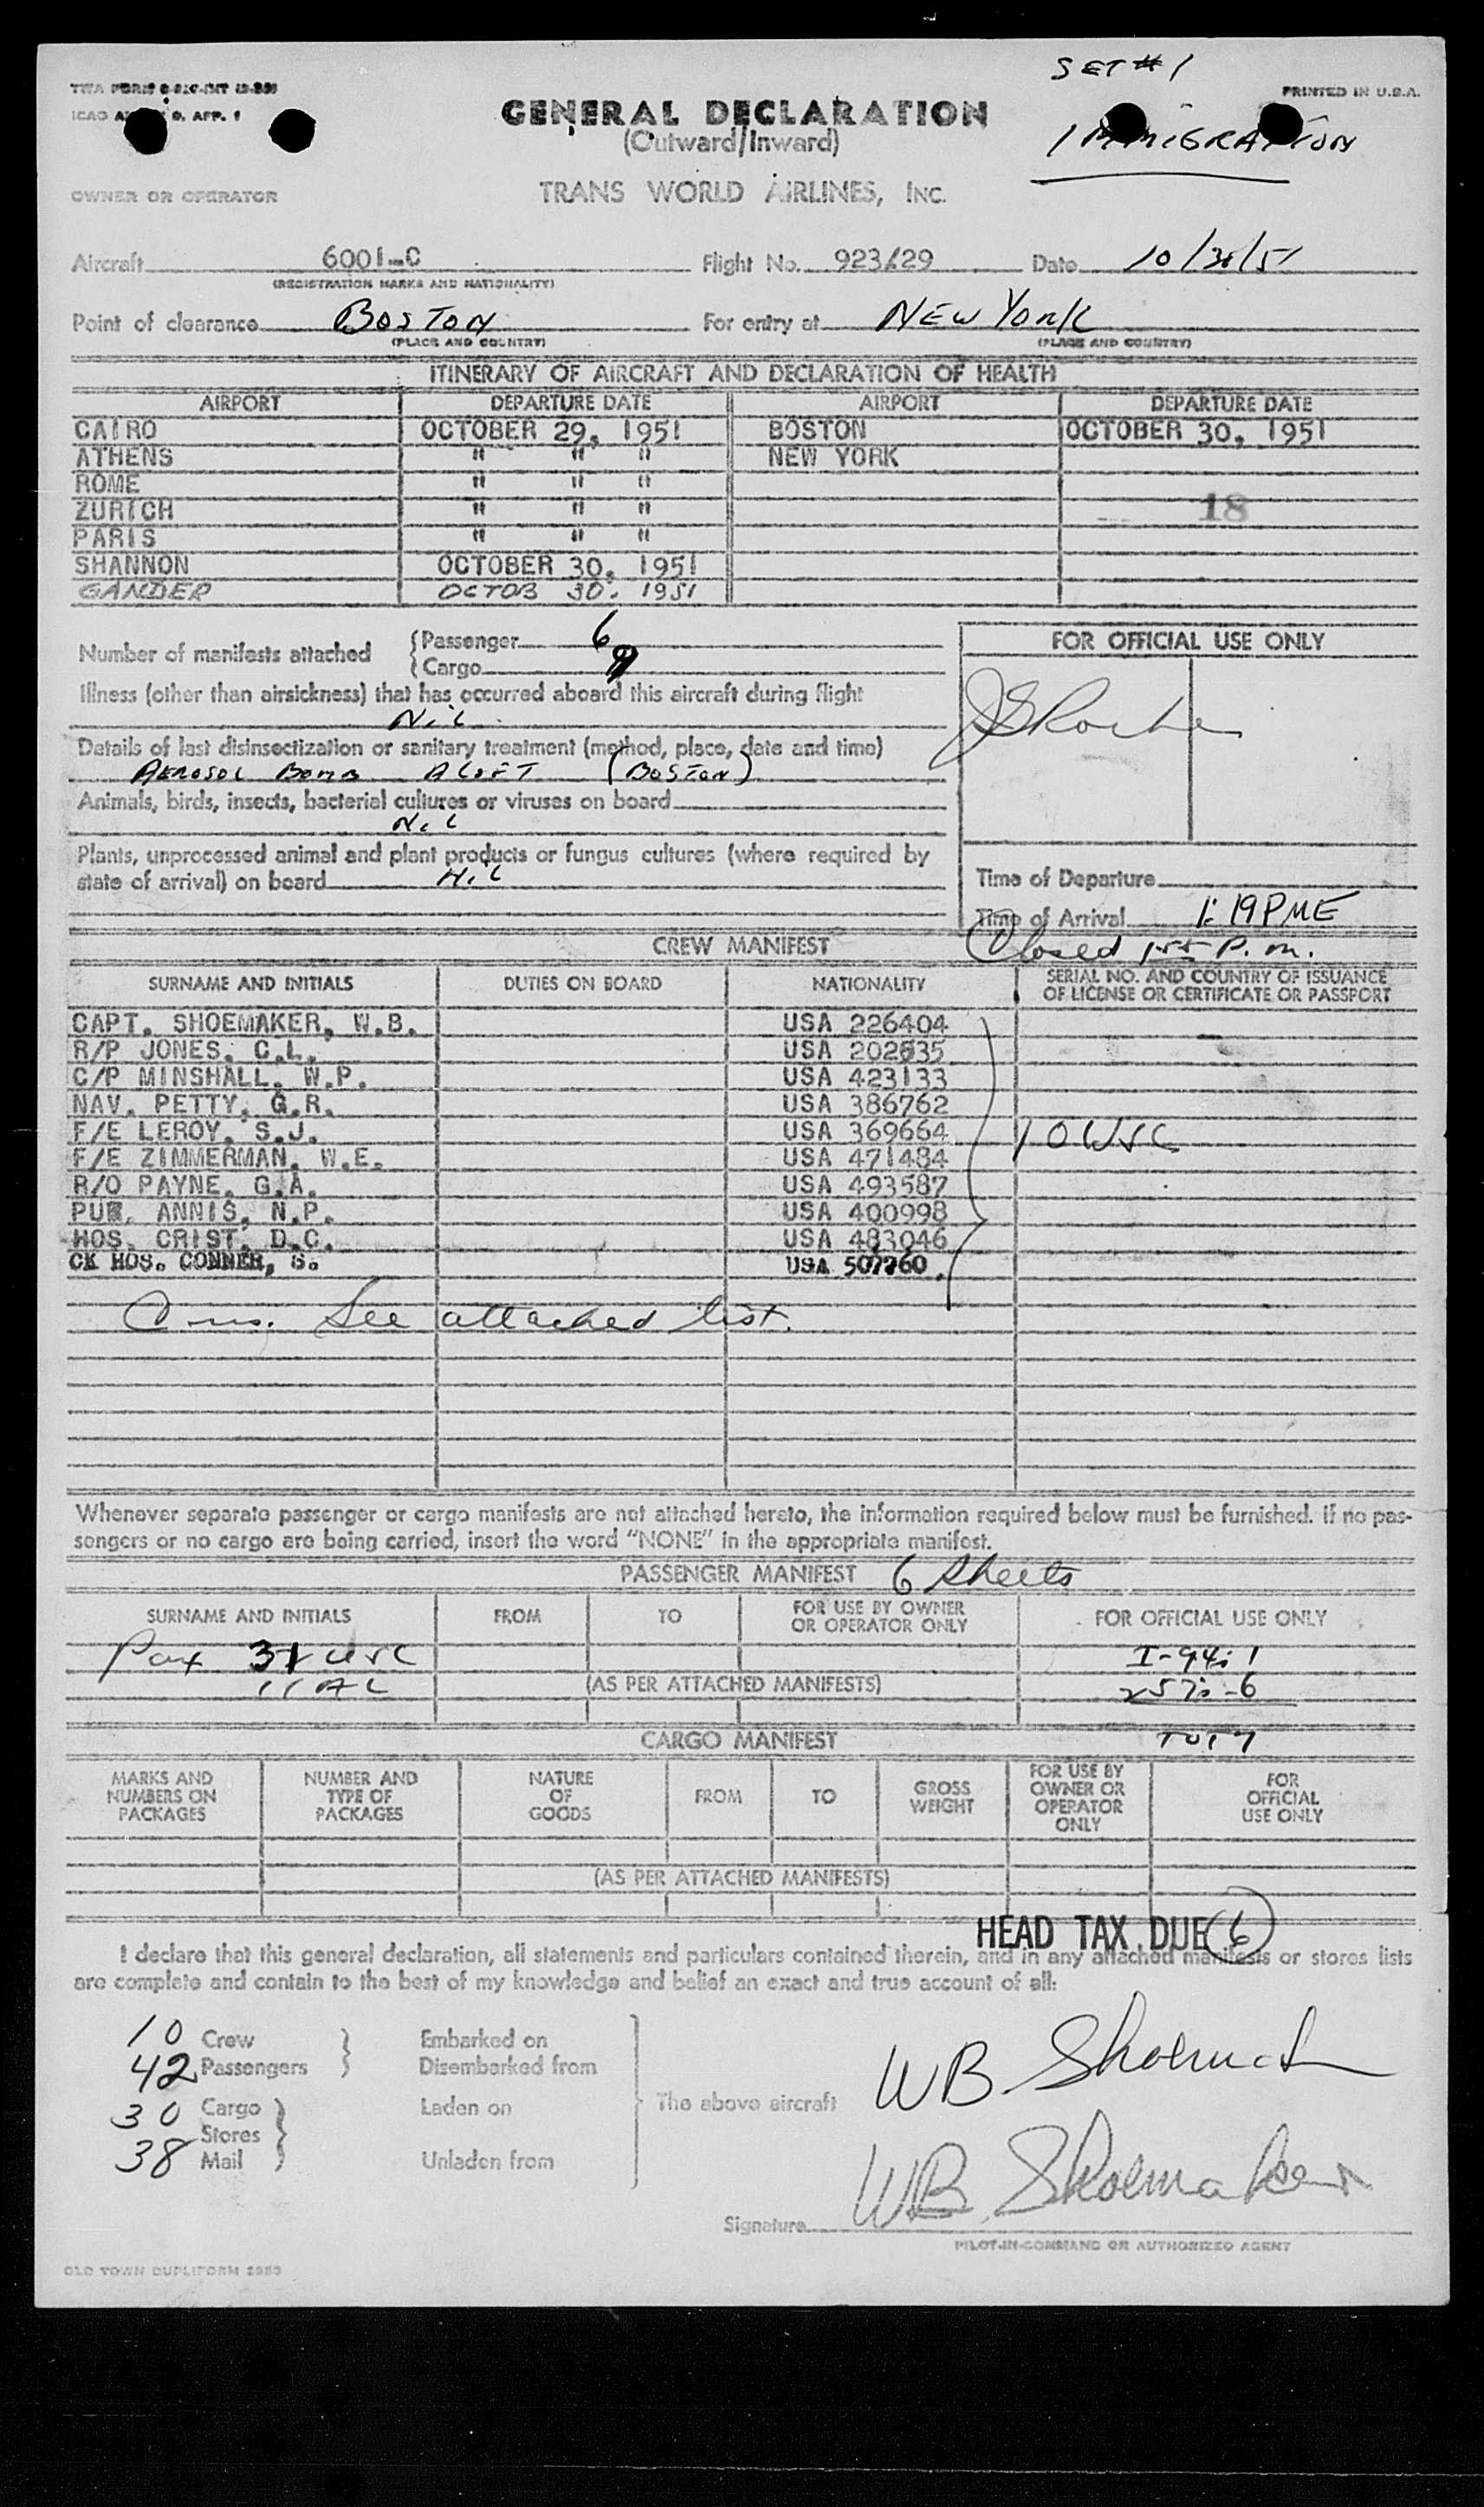 SET #1
PRINTED IN U.S.A.
GENERAL DECLARATION
IMMIGRATION
(Outward/Inward)
OWNER OR OPERATOR
TRANS WORLD AIRLINES, INC.
Aircraft 6001-C Flight No. 923/29 Date 10/30/51
(REGISTRATION MARKS AND NATIONALITY)
Point of clearance BOSTON For entry at NEW YORK
(PLACE AND COUNTRY) (PLACE AND COUNTRY)
ITINERARY OF AIRCRAFT AND DECLARATION OF HEALTH
AIRPORT DEPARTURE DATE AIRPORT DEPARTURE DATE
CAIRO OCTOBER 29, 1951 BOSTON OCTOBER 30, 1951
ATHENS " " " NEW YORK
ROME " " "
ZURICH " " " 18
PARIS " " "
SHANNON OCTOBER 30, 1951
GANDER OCTOB 30. 1951
Number of manifests attached {Passenger 6
{Cargo
FOR OFFICIAL USE ONLY
Illness (other than airsickness) that has occurred aboard this aircraft during flight
Nil
Details of last disinsectization or sanitary treatment (method, place, date and time)
AEROSOL BOMB ALOFT (BOSTON)
Animals, birds, insects, bacterial cultures or viruses on board
Nil
Plants, unprocessed animal and plant products or fungus cultures (where required by
state of arrival) on board Nil
Time of Departure
Time of Arrival 1:19 PME
Closed 155 P.m.
CREW MANIFEST
SURNAME AND INITIALS DUTIES ON BOARD NATIONALITY SERIAL NO. AND COUNTRY OF ISSUANCE
OF LICENSE OR CERTIFICATE OR PASSPORT
CAPT. SHOEMAKER, W.B. USA 226404
R/P JONES, C.L. USA 202835
C/P MINSHALL, W.P. USA 423133
NAV. PETTY, G.R. USA 386762
F/E LEROY, S.J. USA 369664 10 USC
F/E ZIMMERMAN, W.E. USA 471484
R/O PAYNE, G.A. USA 493587
PUR. ANNIS, N.P. USA 400998
HOS. CRIST, D.C. USA 483046
CK HOS. CONNER, S. USA 507760
See attached list.
Whenever separate passenger or cargo manifests are not attached hereto, the information required below must be furnished. If no pas-
sengers or no cargo are being carried, insert the word "NONE" in the appropriate manifest.
PASSENGER MANIFEST 6 sheets
SURNAME AND INITIALS FROM TO FOR USE BY OWNER
OR OPERATOR ONLY FOR OFFICIAL USE ONLY
Pax 31 USC I-94: 1
11 AL (AS PER ATTACHED MANIFESTS) 257: -6
CARGO MANIFEST TOT 7
MARKS AND
NUMBERS ON
PACKAGES
NUMBER AND
TYPE OF
PACKAGES
NATURE
OF
GOODS
FROM
TO
GROSS
WEIGHT
FOR USE BY
OWNER OR
OPERATOR
ONLY
FOR
OFFICIAL
USE ONLY
(AS PER ATTACHED MANIFESTS)
HEAD TAX DUE 6
I declare that this general declaration, all statements and particulars contained therein, and in any attached manifests or stores lists
are complete and contain to the best of my knowledge and belief an exact and true account of all:
10 Crew } Embarked on
42 Passengers Disembarked from
The above aircraft WB Shoemaker
30 Cargo } Laden on
Stores
38 Mail Unladen from
Signature WB Shoemaker
PILOT-IN-COMMAND OR AUTHORIZED AGENT
OLD TOWN DUPLIFORM